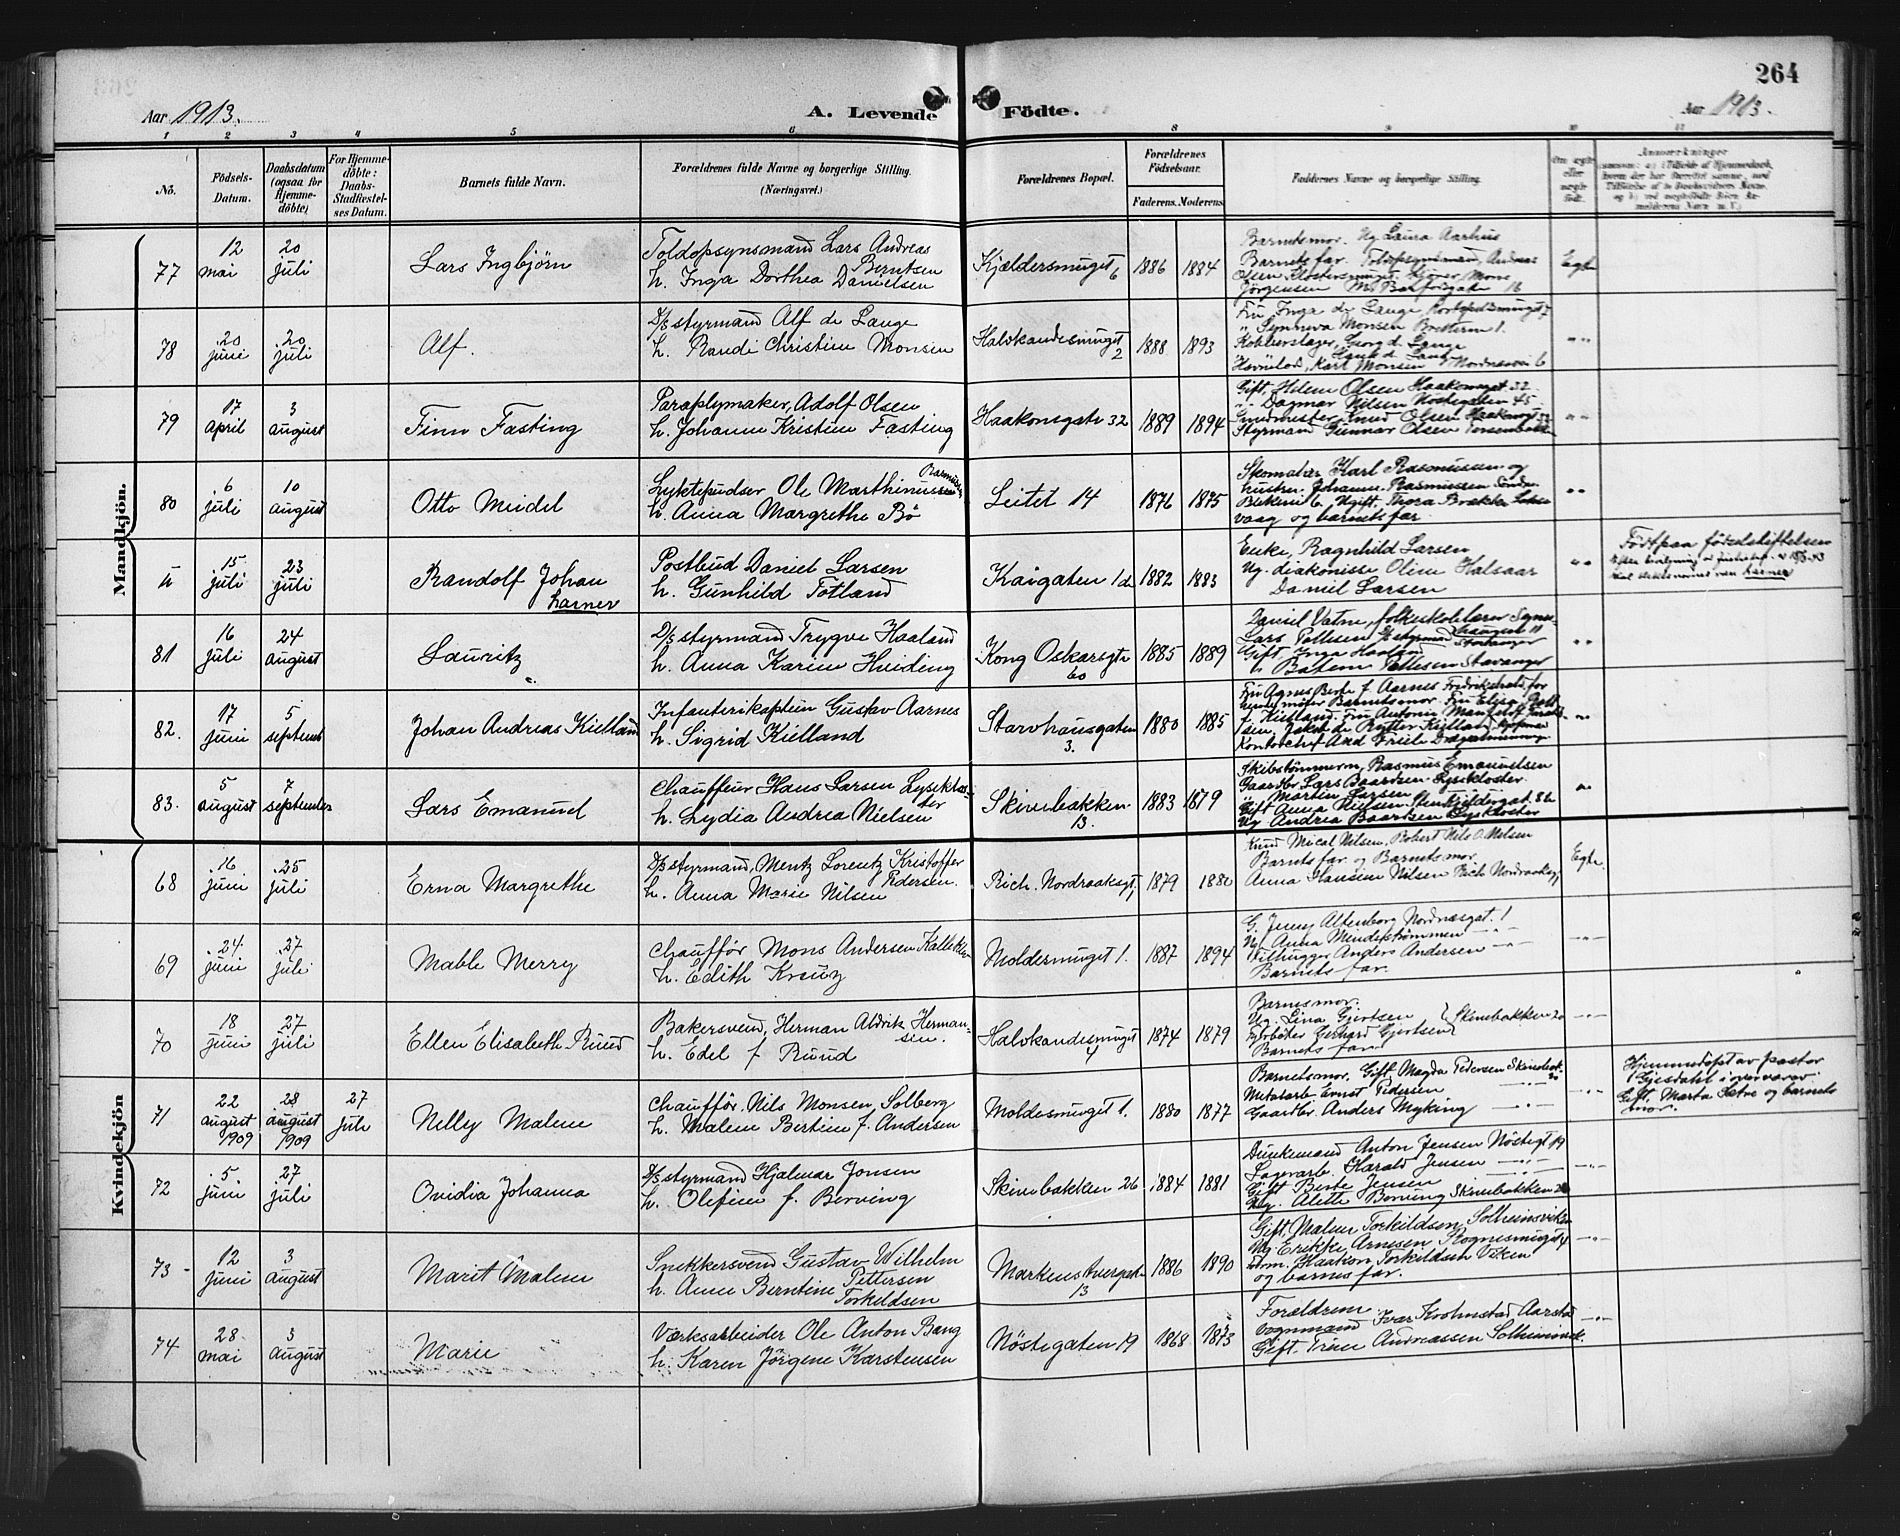 264
Aar 1913.
A. Levende Födte.
Aar 1913.
1 2 3 4 5 6 8 9 10 11
No.
Födsels-
Datum.
Daabsdatum
(ogsaa for
Hjemme-
döbte)
For Hjemme-
döbte:
Daabs-
Stadfæstel-
ses Datum.
Barnets fulde Navn.
Forældrenes fulde Navne og borgerlige Stilling.
(Næringsvei.)
Forældrenes Bopæl.
Forældrenes
Födselsaar.
Faderens. Moderens.
Faddernes Navne og borgerlige Stilling.
Om ægte
eller
uægte
födt.
Anmærkninger
Mandkjön.
77
12 mai
20 juli
Lars Ingbjörn
Toldopsynsmand Lars Andreas Berntsen
h. Inga Dorthea Danielsen
Kjeldersmuget 6
1886 1884
Barnets mor. Ug Laura Aarhus
Barnets far. Toldopsynsmand, Andreas
Olsen Klostersmuget.
Jörgensen
Egte
78
20 juni
20 juli
Alf.
D/s styrmand Alf de Lange
h. Randi Christine Monsen
Halvkandesmuget 2
1888 1893
Fru Inga de Lange
" Synneva Monsen
Kobberslager, Georg d. Lange
Karl Monsen Nordnæsvei 6
" "
79
17 april
3 august
Finn Fasting
Paraplymaker, Adolf Olsen
h. Johanne Kristine Fasting
Haakonsgate 32
1889 1894
Gift, Helene Olsen Haakonsgt 32
" Dagmar Nilsen Nöstegaten 45
Knud Olsen Haakonsgt 32
Styrmand Gunnar Olsen
" "
80
6 juli
10 august
Otto Meidel
Lyktepudser Ole Marthinussen Rasmussen
h. Anna Margrethe Bö
Leitet 14
1876 1875
Skomaker Karl Rasmussen og
hustru Johanne Rasmussen Söndre
Blekevei 6. Ugift, Thora Brække
vaag og barnets far.
" "
ü
15 juli
23 juli
Randolf Johan
Larner
Postbud Daniel Larsen
h. Gunhild Totland
Kaigaten 1d
1882 1883
Enke, Ragnhild Larsen
Ug. diakonisse Oline Halsaar
Daniel Larsen
" "
Födt paa födselsstiftelsen
81
16 juli
24 august
Lauritz
D/s styrmand Trygve Haaland
h. Anna Karine Hviding
Kong Oskarsgt 60
1885 1889
Daniel Vatne, folkeskolelærer
Lars Pettesen styrmand Stavanger
Gift, Inga Haaland
" Pettesen Stavanger
" "
82.
17 juni
5 septembr
Johan Andreas Kielland
Infanterikaptein Gustav Aarnes
h. Sigrid Kielland
Starvhausgaten 3.
1880 1885
Fru Agnes Berte f. Aarnes Fredrikstad, for
Barnets mor. Fru Elisa
f. Kielland. Fru Antonie
Jakob de Rytter Kielland
Kontorchef And Friele
" "
83.
5 august
7 september
Lars Emanuel
Chauffeur Hans Larsen Lyseklos-
ter
h. Lydia Andrea Nielsen
Skivebakken 13.
1883 1879
Skibstömmerm, Rasmus Emanuelsen
Gaardbr Lars Baardsen Lysekloster.
" Martin Larsen
Gift Anna Nielsen
Ug Andrea Baardsen Lysekloster
Kvindekjön
68
16 juni
25 juli
Erna Margrethe
D/s styrmand, Mentz Lorentz Kristoffer Pedersen.
h. Anna Marie Nilsen
Rich. Nordraaksgt,
1879 1880
Knud Mical Nilsen, Robert Nils O. Nilsen
Barnets far og Barnets mor.
Anna Hansine Nilsen Rich Nordraaksgt
Egte.
69
24 juni
27 juli
Mable Merry
Chaufför Mons Andersen
h. Edith Kreuz
Moldesmuget 1.
1887 1894
G. Jenny Altenborg Nordnæsgat. 1
Ug Anna
Anders Andersen
Barnets far.
70
18 juni
27 juli
Ellen Elisabeth Ruud
Bakersvend, Herman Aldrik Herman-
sen.
h. Edel f. Ruud
Halvkandesmuget 4
1874 1879
Barnets mor.
Ug, Lina Gjertsen Skivebakken 20
Gerhard Gjertsen
Barnets far
71
22 august 1909
28 august 1909
27 juli
Nelley Malene
Chaufför, Nils Monsen Solberg
h. Malene Bertine f. Andersen
Moldesmuget 1.
1880 1877
Barnets mor. Gift, Magda Pedersen Skivebak. 20
Metalarb Ernst Pedersen
Gaardbr. Anders Myking
Hjemmedöpt av pastor
Gjesdahl i overvær av
Gift. Marta Sætre og barnets
mor.
72
5 juni
27 juli
Ovidia Johanna
D/s styrmand Hjalmar Jensen
h. Olefine f. Berving
Skivebakken 26
1884 1881
Anton Jensen Nöstegt 19
Lagerarb. Harald Jensen
Gift Berte Jensen
Ug. Alette Berving Skivebakken 26
73
12 juni
3 august
Marit Malene
Snekkersvend Gustav Wilhelm Pettersen
h. Anne Berntine Torkildsen
Markens tvergate 13
1886 1890
Gift, Malene Torkildsen, Solheimsviken
Ug Erikke Arnesen
Haakon Torkildsen Viken
og barnets far.
74
28 mai
3 august
Marie
Værksarbeider Ole Anton Bang
h. Karen Jörgine Karstensen
Nöstegaten 19
1868 1873
Forældrene.
vognmand Ivar Aarstad
Gift. Trine Andreassen